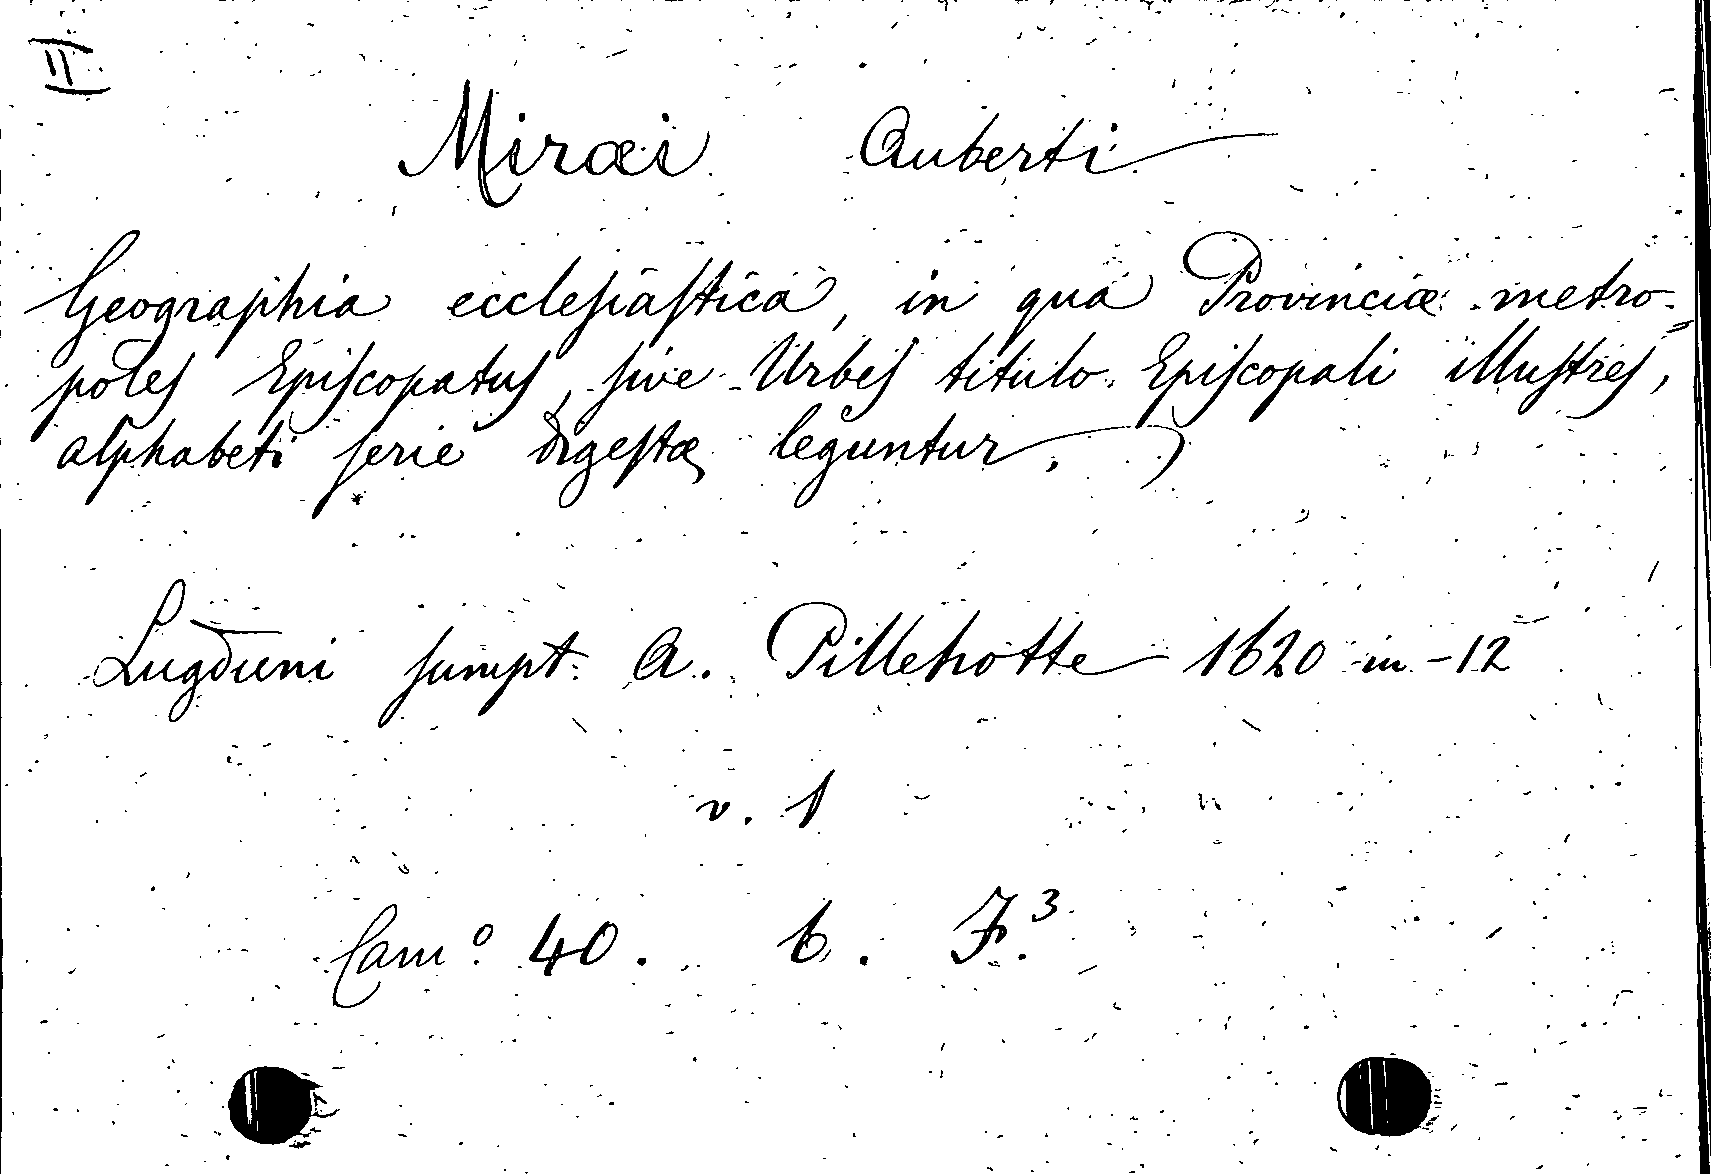 II
Miræi Auberti
Geographia ecclesiastica, in qua Provinciæ metro-
poles Episcopatus, sive Urbes titulo Episcopali illustres,
alphabeti serie digestæ leguntur.
Lugduni sumpt. A. Pillehotte 1620 in-12
v. 1
Camº 40. 6. F.³